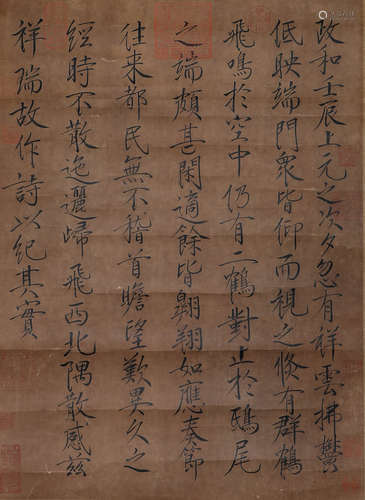 政和壬辰上元之次夕忽有祥雲拂鬱
低映端門衆皆仰而視之倏有群鶴
飛鳴於空中仍有二鶴對止於鴟尾
之端頗甚閑適餘皆翱翔如應奏節
往来都民無不稽首瞻望歎異久之
經時不散迤邐歸飛西北隅散感茲
祥瑞故作詩以紀其實